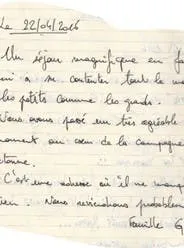 Le 22/04/2016
Un séjour magnifique en fa
ui a su contenter tout le mo
les petits comme les grands.
Nous avons passé un très agréable
moment au cœur de la campagne
etonne.
C'est une adresse où il ne manque
ien. Nous reviendrons probablem
Famille G